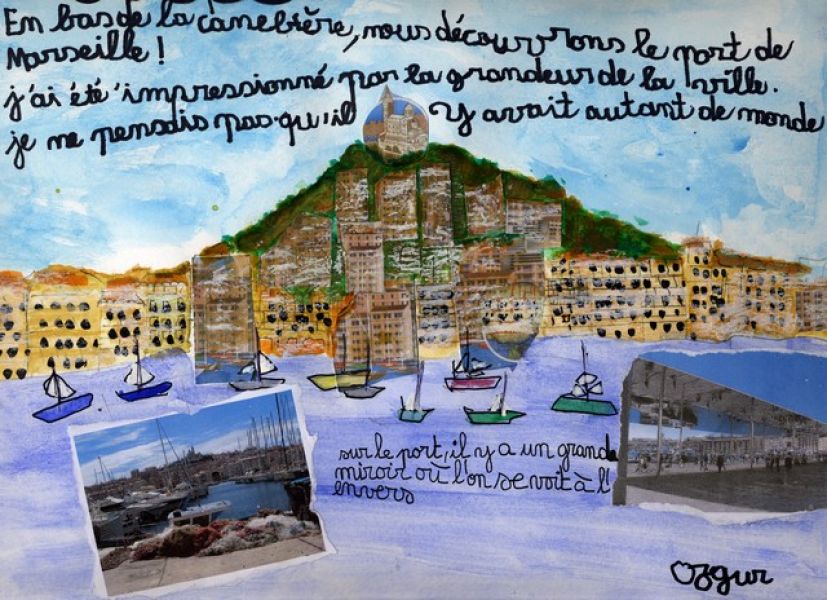 En bas de la canebière, nous découvrrons le port de
Marseille !
j'ai été impressionné par la grandeur de la ville.
je ne pensais pas qu'il y avait autant de monde
sur le port, il y a un grand
miroir où l'on se voit à l'
envers
Ozgur